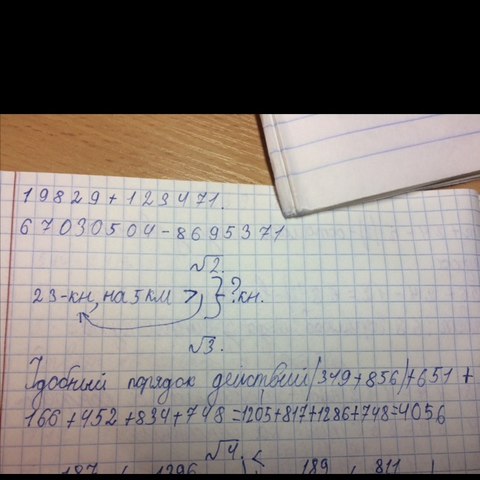 19829+123471.
67030504-8695371
√2.
23-кн, на 5 км > } ? кн.
√3.
Удобный порядок действий (349+856)+651+
166+452+834+748=1205+817+1286+748=4056
√4.
187 1296 189 811